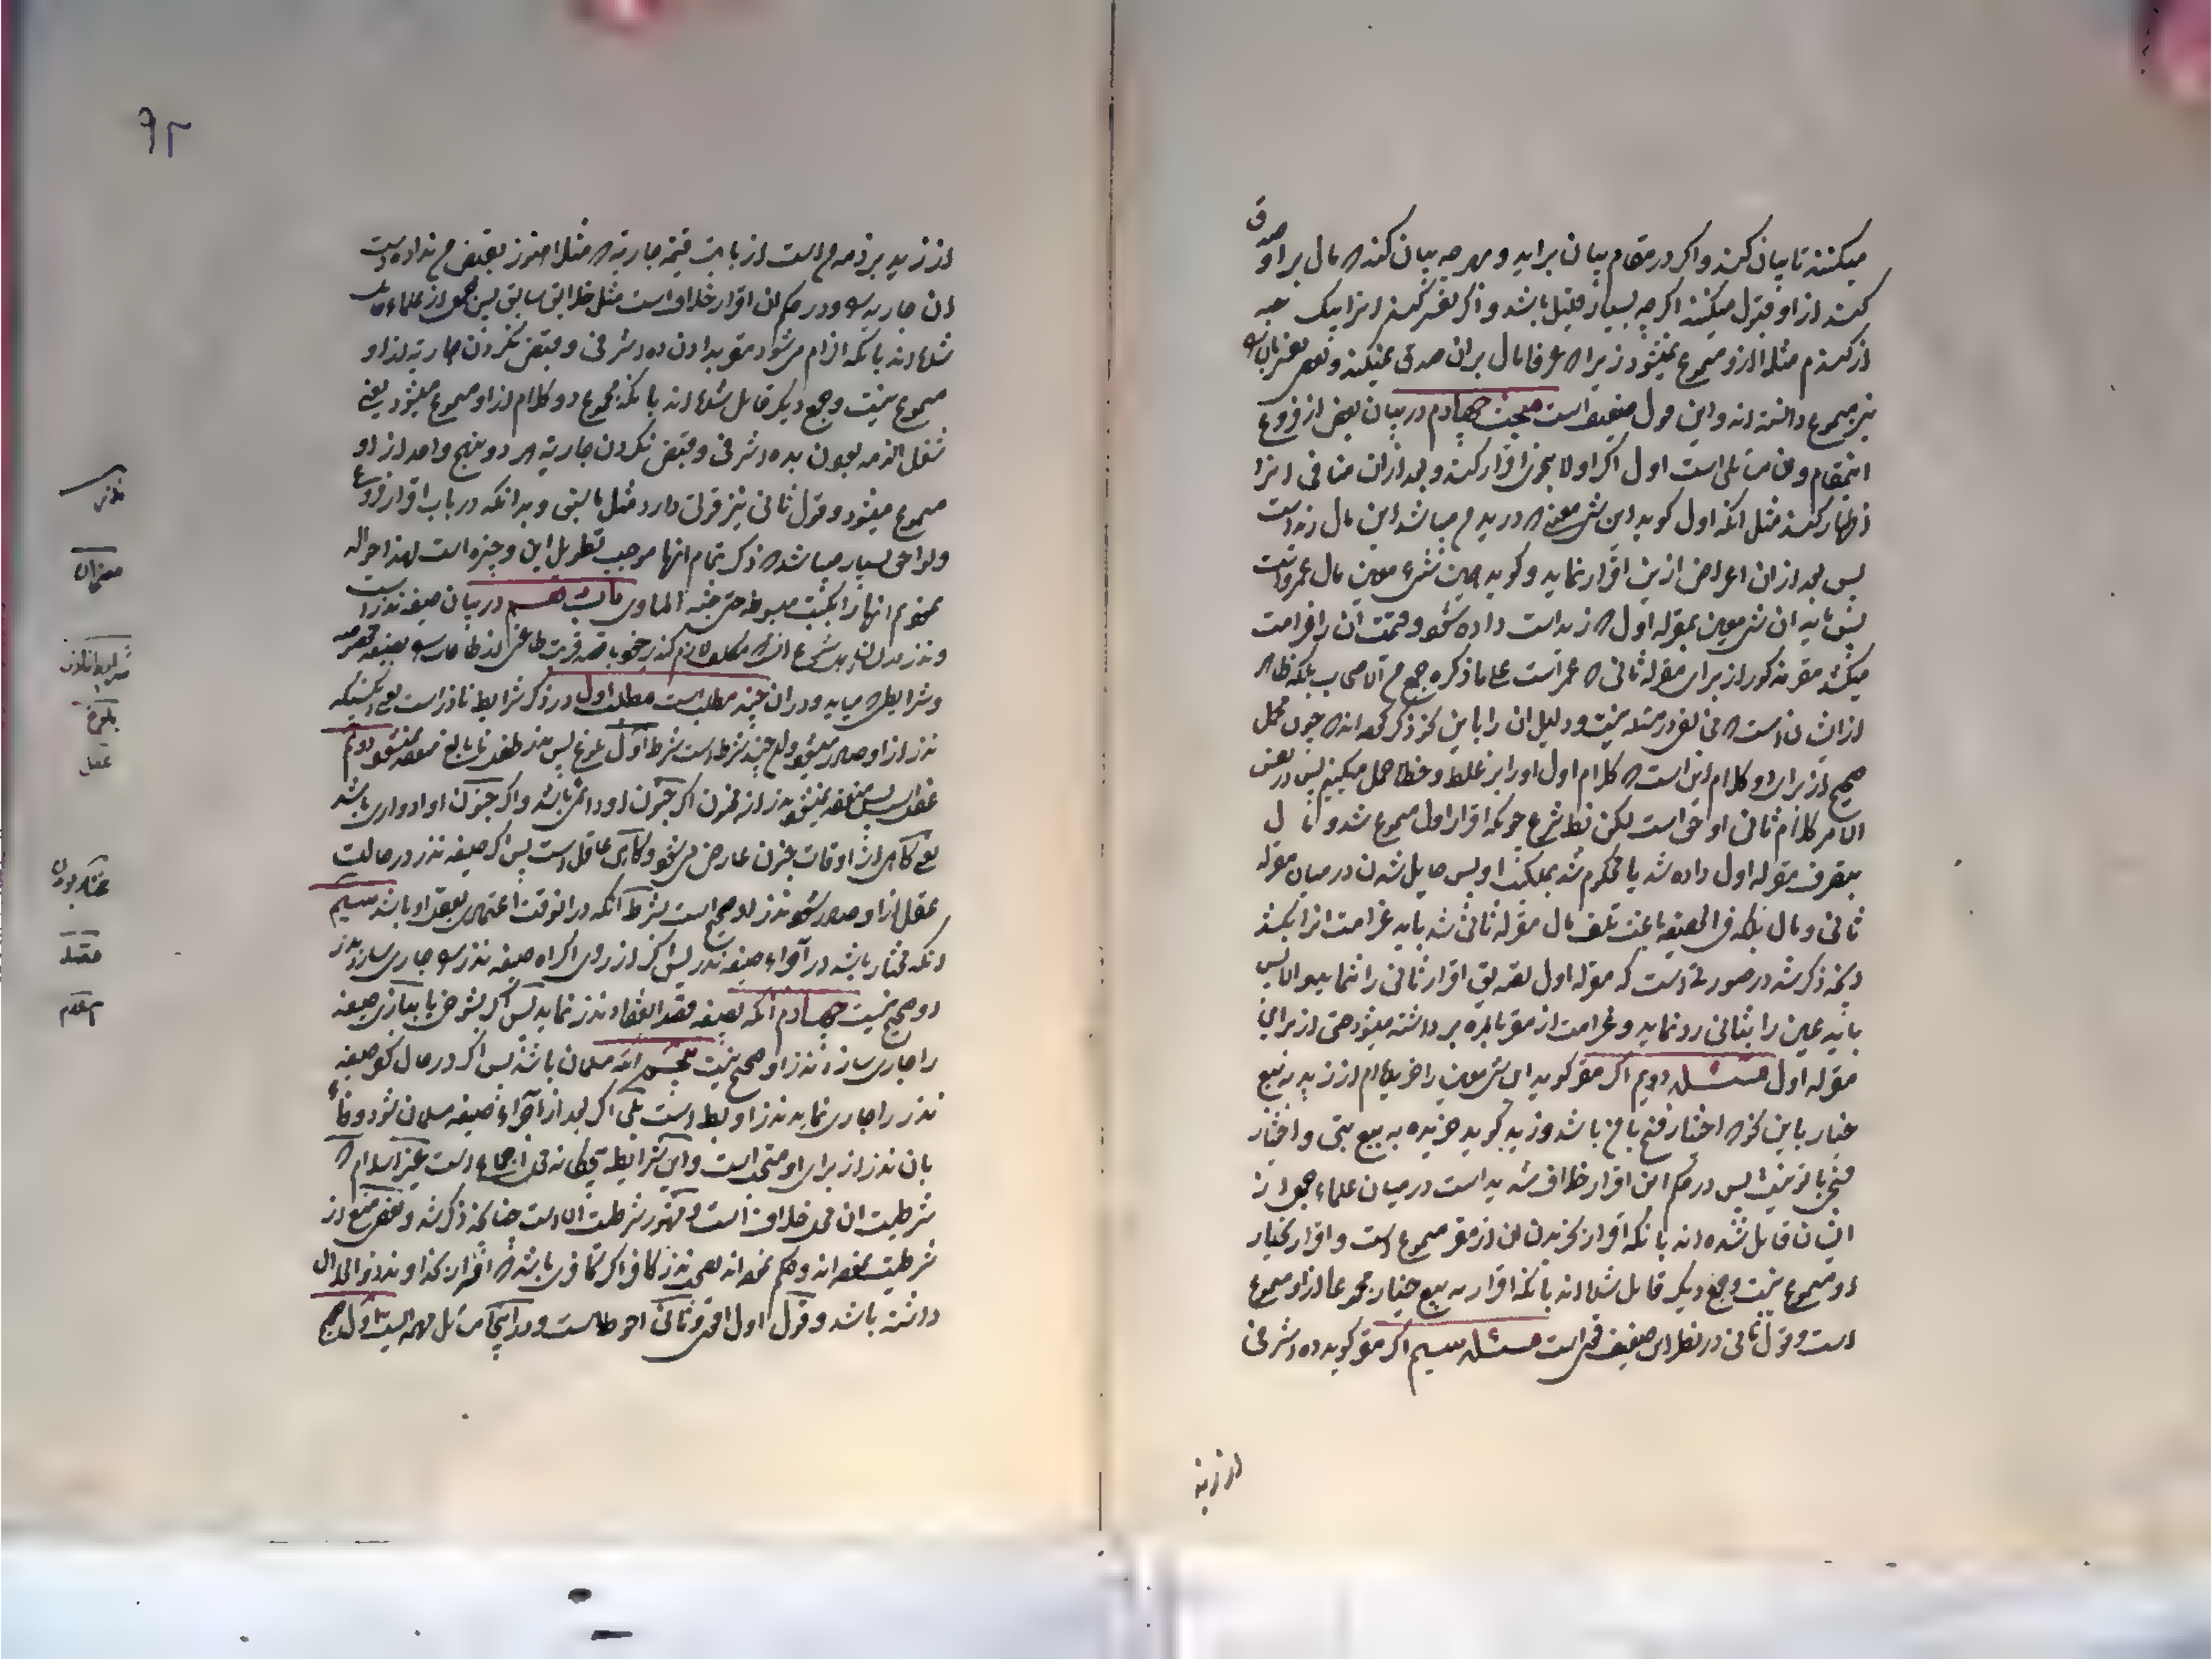 میکنند تا بیان کند و اکر در مقام بیان براید و هر چه بیان کند که مال بر او صدق
کند از او قبول میکنند اکر چه بسیار قلیل باشد و اکر تفسیر کند انرا بیک حبه
از کندم مثلا از او مسموع نمیشود زیرا که عرفا مال بر ان صدق نمیکند و بعضی
نیز مسموع دانسته اند و این قول ضعیف است مبحث چهارم در بیان بعض از فروع
اینمقام و ان مسائلی است اول اکر اولا بچیزی اقرار کند و بعد از ان منافی انرا
اظهار کند مثل انکه اول کوید این شیء معین که در ید من میباشد این مال زید است
پس بعد از ان اعراض ازین اقرار نماید و کوید همین شیء معین مال عمرو است
پس باید ان شیء معین بمقر له اول که زید است داده شود و قیمت ان را غرامت
میکشد مقر مذکور از برای مقر له ثانی که عمرو است علی ما ذکره جمع من الاصحاب بلکه ظاهر
از ایشان انست که مخالفی در مسئله نیست و دلیل ان را باین نحو ذکر کرده اند که چون محمل
صحیح از برای او کلام این است که کلام اول او را بر غلط و خطا حمل میکنیم پس در نفس
الامر کلام ثانی او حق است لکن بظاهر شرع چونکه اقرار اول مسموع شد و مال
بتصرف مقر له اول داده شد یا محکوم شد بملکیت او پس حایل شدن در میان مقر له
ثانی و مال بلکه فی الحقیقه باعث تلف مال مقر له ثانی شد باید غرامت انرا بکشد
و انچه ذکر شد در صورتی است که مقر له اول تصدیق اقرار ثانی را ننماید و الا پس
باید عین را بثانی رد نماید و غرامت از مقر بالمره برداشته میشود حتی از برای
مقر له اول مسئله دویم اکر مقر کوید این شیء معین را خریده ام از زید به بیع
خیار باین نحو که اختیار فسخ با من باشد و زید کوید خریده به بیع بتی و اختیار
فسخ با تو نیست پس در حکم این اقرار خلاف شدید است در میان علماء جمعی از
ایشان قایل شده اند بانکه اقرار بخریدن ان از مقر مسموع است و اقرار بخیار
او مسموع نیست و جمع دیکر قایل شده اند بانکه اقرار به بیع خیار مجموعا از او مسموع
است و قول ثانی در نظر این ضعیف قوی است مسئله سیم اکر مقر کوید ده اشرفی
از زید
۹۲
از زید بر ذمه من است از بابت قیمة جاریه که مثلا هنوز بقبض من نداده است
ان جاریه را و در حکم این اقرار خلاف است مثل خلاف سابق پس جمعی از علماء قایل
شده اند بانکه الزام میشود مقر بدادن ده اشرفی و قبض نکردن جاریه از او
مسموع نیست و جمع دیکر قایل شده اند بانکه مجموع دو کلام از او مسموع میشود یعنی
شغل الذمه بودن بده اشرفی و قبض نکردن جاریه هر دو بنهج واحد از او
مسموع میشود و قول ثانی نیز قوت دارد مثل سابق و بدانکه در باب اقرار فروع
و لواحق بسیار میباشد که ذکر تمام انها موجب تطویل این وجیزه است لهذا حواله
نمودم انها را بکتب مبسوطه حتی جنة الماوی باب هشتم در بیان صیغه نذر است
و نذر
و شرایطی که میاید و در ان چند مطلب است مطلب اول در ذکر شرایط ناذر است یعنی کسیکه
نذر از او صادر میشود و ان چند شرط است شرط اول بلوغ پس نذر طفل نابالغ منعقد نمیشود دویم
عقل است پس منعقد نمیشود نذر از مجنون اکر جنون او دائمی باشد و اکر جنون او ادواری باشد
یعنی کاهی از اوقات جنون عارض میشود و کاهی عاقل است پس اکر صیغه نذر در حالت
عقل از او صادر شود نذر او صحیح است بشرط انکه در انوقت اعتماد بعقل او باشد سیم
انکه مختار باشد در اجراء صیغه نذر پس اکر از روی اکراه صیغه نذر را جاری سازد نذر
او صحیح نیست چهارم انکه بصیغه قصد انعقاد نذر نماید پس اکر بشوخی یا ببازی صیغه
را جاری سازد نذر او صحیح نیست پنجم انکه مسلمان باشد پس اکر در حال کفر صیغه
نذر را جاری نماید نذر او باطل است بلی اکر بعد از اجراء صیغه مسلمان شود وفاء
بان نذر از برای او مستحب است و این شرایط تمامی محل اجماع است غیر اسلام که
شرطیت ان محل خلاف است و مشهور شرطیت انست چنانچه ذکر شد و بعضی منع از
شرطیت نموده اند و حکم نموده اند بصحت نذر کافر اکر کافری باشد که اقرار بخدا
داشته باشد و قول اول اقوی و ثانی احوط است و در اینجا مسائل مهمه است اول
نذر
هشتم
شرایط ناذر
بلوغ
عقل
مختار بودن
قصد
اسلام